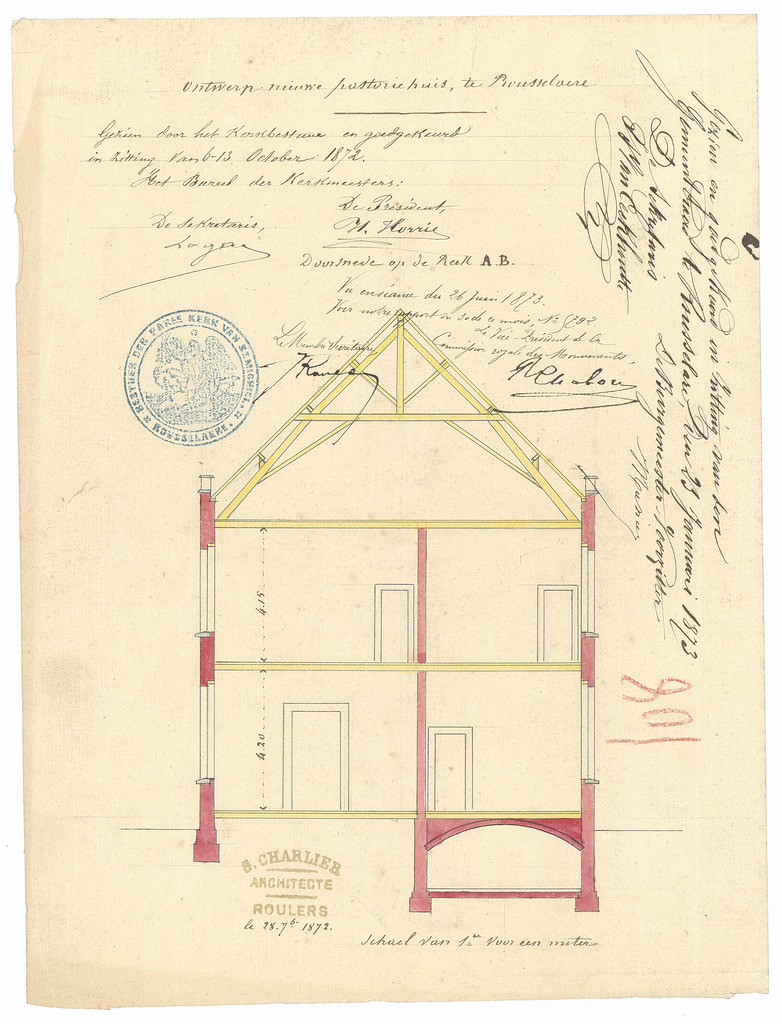 Ontwerp nieuwe pastoriehuis, te Rousselaere
Gezien door het Kerkbestuur en goedgekeurd
in zitting van 6-13 October 1872.
Het Bureel der Kerkmeesters:
De President,
De Sekretaris,
H. Horrie
Doorsnede op de Reek A.B.
Vu en séance du 26 Juin 1873.
Voir notre rapport du 30 de ce mois, No
Le Vice-Président de la
Commission royale des Monuments,
Le Membre Secrétaire
BESTUER DER PARLE KERK VAN ST MICHIEL
ROUSSELAERE.
4.15
4.20
S. CHARLIER
ARCHITECTE
ROULERS
le 28. 7b 1872.
Schael van voor een meter
Gezien en goedgekeurd in zitting van den
Gemeenteraad te Rousselare, den 25 Januari 1873
De Sekretaris
De Burgemeester, Voorzitter
108